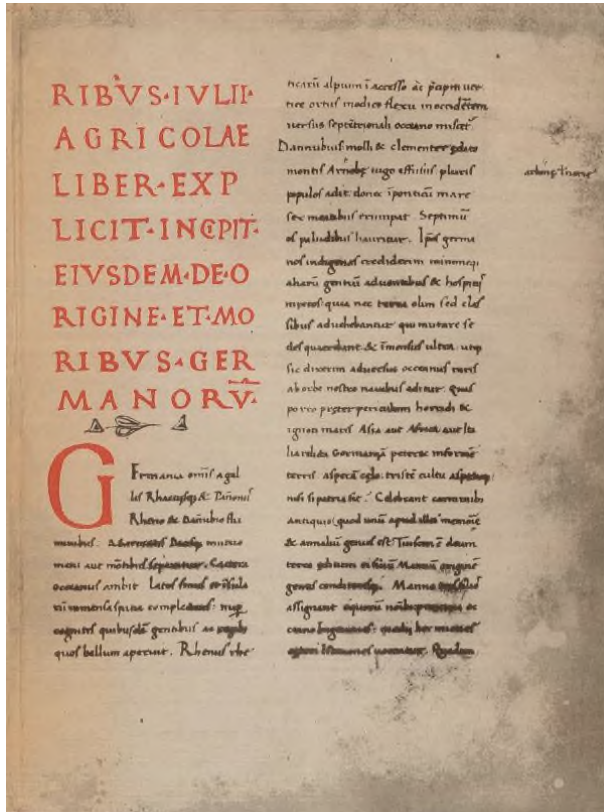 RIBVS·IVLII·
AGRICOLAE
LIBER·EXP
LICIT·INCIPIT·
EIVSDEM·DE·O
RIGINE·ET·MO
RIBVS·GER
MANORV̅·
Germania omīs a gal
lis Rhaetisqȝ & Pānoniis
Rheno & Danubio flu
minibus. A mutuo
metu aut mōtibus separatur. Caetera
oceanus ambit. Latos sinus et īsula
rū immensa spatia complectens nup
cognitis quibusdā gentibus ac
quos bellum aperuit. Rhenus rhe
ticarū alpium ī accesso ac p̄cipiti uer
tice ortus modico flexu in occidētem
uersus septētrionali oceano miscet̄
Dannubius molli & clementer edito
montis Arnobę iugo effusus pluris
populos adit donec ī ponticū mare
sex meatibus erumpat. Septimū
os paludibus hauritur. Ip̄os germa
nos indigenas crediderim minimeqȝ
aliarū gentiū aduentibus & hospitiis
mixtos: quia nec terra olim sed clas
sibus aduehebantur qui mutare se
des quaerebant & īmensus ultra utqȝ
sic dixerim aduersus occeanus raris
ab orbe nostro nauibus aditur. Quis
porro pręter periculum horridi &
ignoti maris Asia aut Africa aut Ita
lia relicta Germaniā peteret informē
terris asperā cęlo: tristē cultu aspectuqȝ
nisi si patria sit. Celebrant carminib
antiquis: quod unū apud illos memorię
& annaliū genus est. Tuistonē deum
terra editum et filium Mannū originē
gentis conditoresqȝ. Manno
assignant e quorū
oceano Ingaeuones: medii: hermiones
cęteri Istaeuones uocentur. Quidam